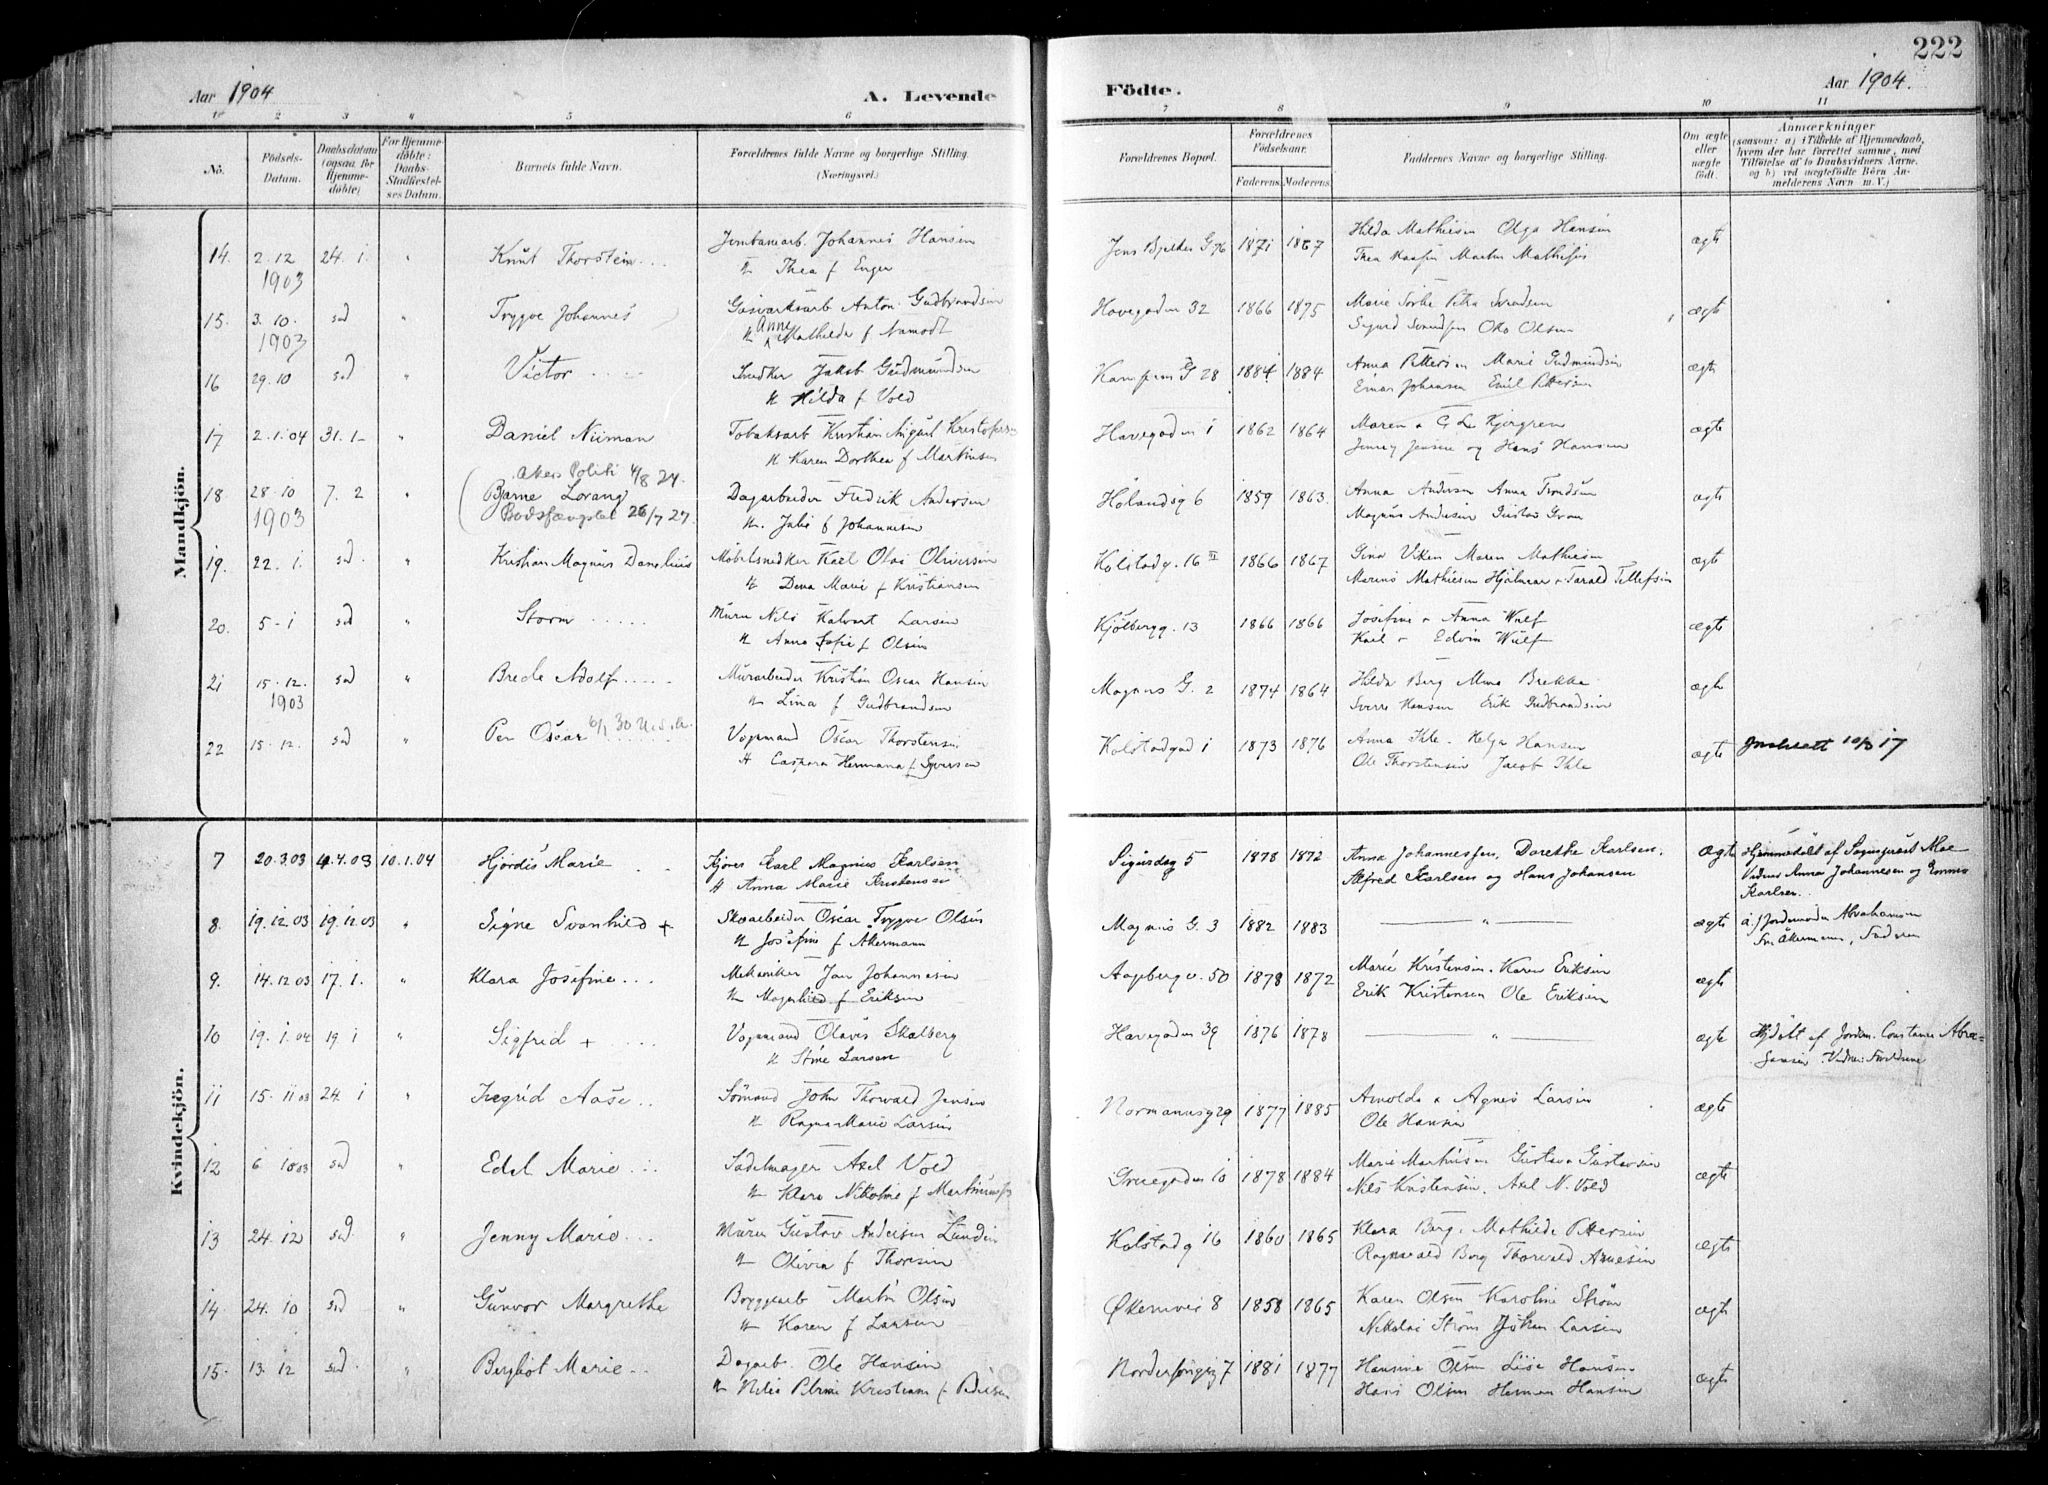 222
Aar 1904
A. Levende
Födte.
Aar 1904.
1 2 3 4 5 6 7 8 9 10 11
No.
Födsels-
Datum.
Daabsdatum
(ogsaa for
Hjemme-
døbte)
For Hjemme-
døbte:
Daabs-
Stadfæstel-
ses Datum.
Barnets fulde Navn.
Forældrenes fulde Navne og borgerlige Stilling.
(Næringsvei.)
Forældrenes Bopæl.
Forældrenes
Födselsaar.
Faderens. Moderens.
Faddernes Navne og borgerlige Stilling.
Om ægte
eller
uægte
födt.
Anmærkninger
(saasom: a) i Tilfælde af Hjemmedaab,
hvem der har forrettet samme, med
Tilföielse af to Daabsvidners Navne.
og b) ved uægtefödte Börn An-
melderens Navn m. V.)
Mandkjön.
14. 2.12 24.1. " Knut Thorstein Jernbanearb. Johannes Hansen Jens Bjelkes G 76 1871 1867 Hilda Mathiesen Olga Hansen ægte
1903 Thea f Enger
15. 3.10. sad " Trygve Johannes Gasværksarb Anton Gudbrandsen Havegaden 32 1866 1875 Marie ægte
1903 Anne Mathilde f Sigurd Svendsen Olsen
16 29.10 sad " Victor Snedker Jakob Gudmundsen Kampens G 28 1884 1884 Anna Pettersen Marie Gudmundsen ægte
Hilda f Vold Einar Johansen Emil Pettersen
17 2.1.04 31.1 " Daniel Niiman Tobaksarb Kristian August Kristofersen Havegaden 1 1862 1864 Maren ægte
Karen Dorthea f Martinsen Jenny Jensen og Hans Hansen
Akers Politi 4/8 24.
18 28.10 7.2 " Bjarne Lorang Dagarbeider Fredrik Andersen Hølandsg 6 1859 1863 Anna Andersen Anna ægte
1903 Bodsfængslet 26/7 27. Julie f Johannesen Magnus Andersen Gustav
19. 22.1. sad " Kristian Magnus Danelius Møbelsnedker Karl Olai Oliversen Kolstadg. 16 II 1866 1867 Gina Viken Maren Mathiesen ægte
Dina Marie f Kristiansen Marius Mathiesen Hjalmar Tarald Tellefsen
20. 5.1 sad " Storm Murer Nils Halvart Larsen Kjølbergg. 13 1866 1866 Josefine & Anna Wulf ægte
Anna Sofie f Olsen Karl & Edvin Wulf
21 15.12. sad " Brede Adolf Murarbeider Kristian Oscar Hansen Magnus G. 2 1874 1864 Hilda Berg Brekke ægte
1903 Lina f Gudbrandsen Sverre Hansen Erik Gudbrandsen
22 15.12. sad " Per Oscar 6/1 30 U.S.A. Vognmand Oscar Thorstensen Kolstadgad 1 1873 1876 Anna Ihle. Helga Hansen ægte 10/3 17
Caspara Hermana f Syversen Ole Thorstensen Jacob Ihle
Kvindekjön.
7 20.3.03 4.4.03 10.1.04 Hjørdis Marie Kjører Karl Magnus Karlsen Sigurdsg 5 1878 1872 Anna Johannessen, Dorethe Karlsen. Ægte Hjemmedøbt af Sogneprest Moe
Anna Marie Kristensen Alfred Karlsen og Hans Johansen Vidner Anna Johannesen og Emma
Karlsen.
8. 19.12.03 19.12.03 " Signe Svanhild + Skoarbeider Oscar Trygve Olsen Magnus G. 3 1882 1883 " ægte a) Jordemoder Abrahamsen
Josefine f Åkermann Fru Åkermann, Faderen
9. 14.12.03 17.1. " Klara Josefine Mekaniker Johannesen Aagebergv. 50 1878 1872 Marie Kristensen. Karen Eriksen ægte
Magnhild f Eriksen Erik Kristensen Ole Eriksen
10 19.1.04 19.1 " Sigfrid + Vognmand Olaus Skalberg Havegaden 39 1876 1878 " ægte Hjdøbt af Jordm. Constance Abra-
Stine Larsen hamsen Vidner: Forældrene
11 15.11 03 24.1 " Ingrid Aase Sømand John Thorvald Jensen Normannsg 29 1877 1885 Arnolda & Agnes Larsen ægte
Ragna Marie Larsen Ole Hansen
12 6.10 03 sad " Edel Marie Sadelmager Axel Vold Gruegaden 10 1878 1884 Marie Martinsen Gustava Gustavsen ægte
Klara Nikoline f Martinussen Nils Kristensen. Axel N. Vold
13 24.12 sad " Jenny Marie Murer Gustav Andersen Lundin Kolstadg 16 1860 1865 Klara Berg. Mathilde Pettersen ægte
Olivia f Thoresen Ragnvald Berg Thorvald Arnesen
14. 24.10 sad " Gunvor Margrethe Bryggearb Martin Olsen Økernvei 8 1858 1865 Karen Olsen Karoline Strøm ægte
Karen f Larsen Nikolai Strøm Johan Larsen
15. 13.12 sad " Bergliot Marie Dagarb. Ole Hansen 7 1881 1877 Hansine Olsen Lise Hansen ægte
Kristians f Hans Olsen Herman Hansen